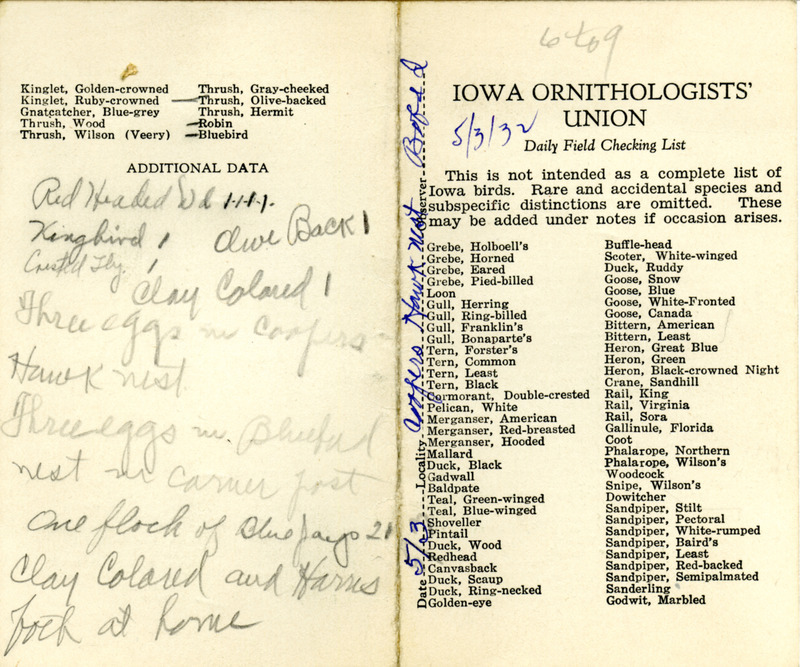 Kinglet, Golden-crowned
Kinglet, Ruby-crowned
Gnatcatcher, Blue-grey
Thrush, Wood
Thrush, Wilson (Veery)
Thrush, Gray-cheeked
Thrush, Olive-backed
Thrush, Hermit
Robin
Bluebird
ADDITIONAL DATA
Red Headed Wd 1.1.1.1.
Kingbird 1
Olive Back 1
Crested Fly. 1
Clay Colored 1
Three eggs in Coopers
Hawk nest
Three eggs in Bluebird
nest in corner post
One flock of Blue Jays 21
Clay Colored and Harris
both at home
6 to 9
IOWA ORNITHOLOGISTS'
UNION
5/3/32
Daily Field Checking List
This is not intended as a complete list of
Iowa birds. Rare and accidental species and
subspecific distinctions are omitted. These
may be added under notes if occasion arises.
Date 5/3 Locality Coopers Hawk nest Observer
Grebe, Holboell's
Grebe, Horned
Grebe, Eared
Grebe, Pied-billed
Loon
Gull, Herring
Gull, Ring-billed
Gull, Franklin's
Gull, Bonaparte's
Tern, Forster's
Tern, Common
Tern, Least
Tern, Black
Cormorant, Double-crested
Pelican, White
Merganser, American
Merganser, Red-breasted
Merganser, Hooded
Mallard
Duck, Black
Gadwall
Baldpate
Teal, Green-winged
Teal, Blue-winged
Shoveller
Pintail
Duck, Wood
Redhead
Canvasback
Duck, Scaup
Duck, Ring-necked
Golden-eye
Buffle-head
Scoter, White-winged
Duck, Ruddy
Goose, Snow
Goose, Blue
Goose, White-Fronted
Goose, Canada
Bittern, American
Bittern, Least
Heron, Great Blue
Heron, Green
Heron, Black-crowned Night
Crane, Sandhill
Rail, King
Rail, Virginia
Rail, Sora
Gallinule, Florida
Coot
Phalarope, Northern
Phalarope, Wilson's
Woodcock
Snipe, Wilson's
Dowitcher
Sandpiper, Stilt
Sandpiper, Pectoral
Sandpiper, White-rumped
Sandpiper, Baird's
Sandpiper, Least
Sandpiper, Red-backed
Sandpiper, Semipalmated
Sanderling
Godwit, Marbled